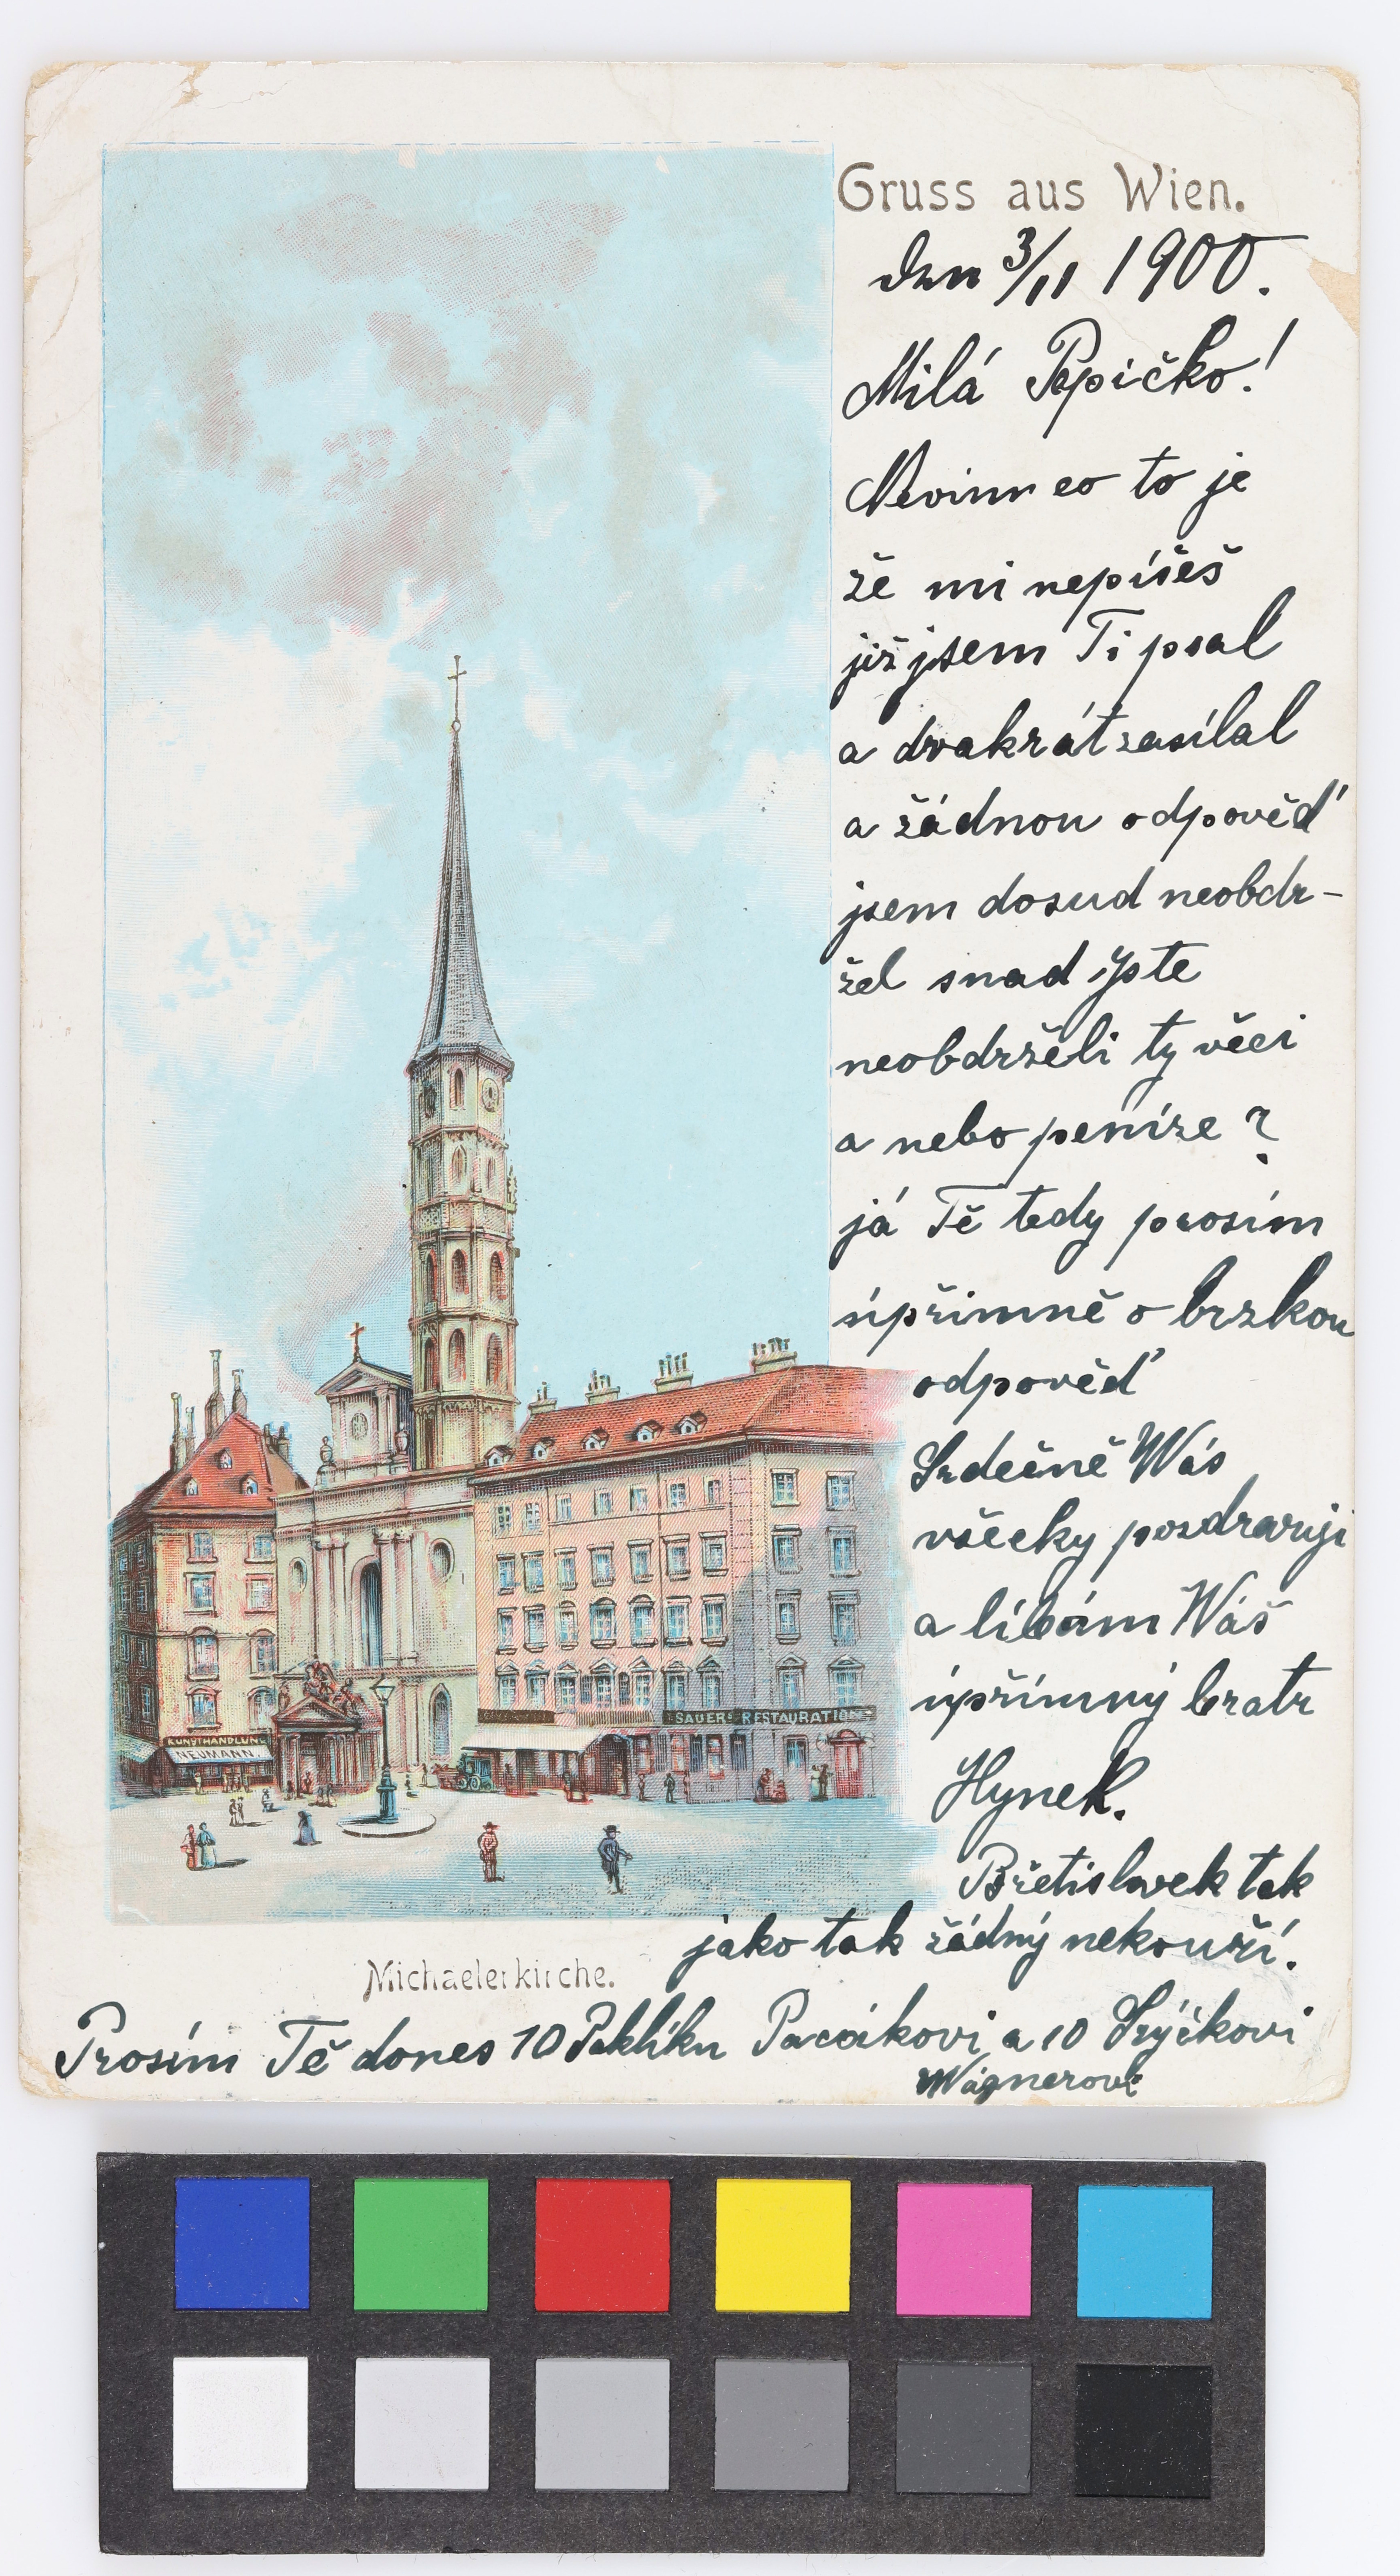 Gruss aus Wien.
den 3/11 1900.
Milá Pepičko!
Nevim co to je
že mi nepíšeš
již jsem Ti psal
a dvakrát zasílal
a žádnou odpověď
jsem dosud neobdr-
žel snad jste
neobdrželi ty věci
a nebo peníze?
já Tě tedy prosím
úpřimně o brzkou
odpověď
Srdečně Wás
všecky pozdravuji
a líbám Wáš
úpřímný bratr
Hynek.
Břetislavek tak
jako tak žádný nekouří.
Michaelerkirche.
Prosím Tě dones 10 a 10
Wágnerovi
KUNSTHANDLUNG
NEUMANN
SAUERS RESTAURATION